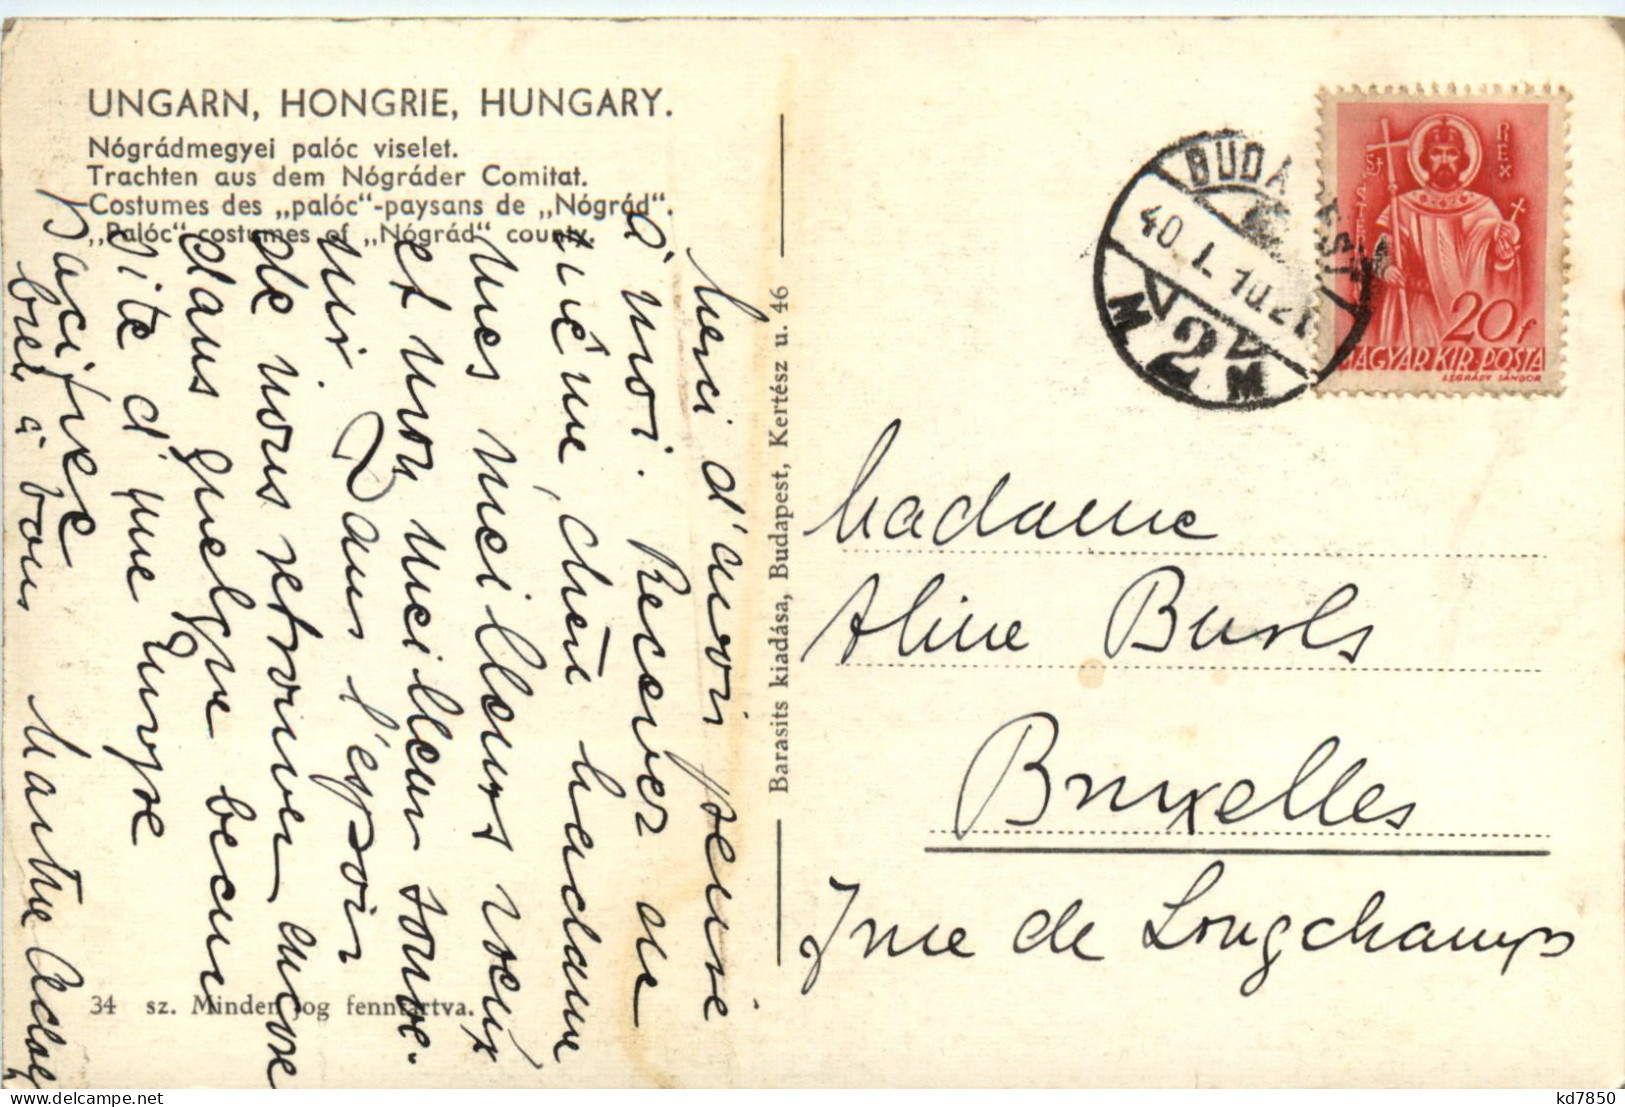 UNGARN, HONGRIE, HUNGARY.
Nógrádmegyei palóc viselet.
Trachten aus dem Nógráder Comitat.
Costumes des „palóc"-paysans de „Nógrád".
„Palóc"-costumes of „Nógrád" county.
Merci d'avoir pensé
à moi. Recevez au
chère Madame
mes meilleurs vœux
et mon meilleur souve-
nir Dans l'espoir
de vous retrouver encore
dans quelque
site d'une Europe
pacifiée
bien à vous
34 sz. Minden jog fenntartva.
Barasits kiadása, Budapest, Kertész u. 46
BUDAPEST
40. I. 10.21
M 2 M
ST
REX
20f
MAGYAR KIR. POSTA
LEGRÁDY SÁNDOR
Madame
Aline Burls
Bruxelles
de Longchamps
kd7850